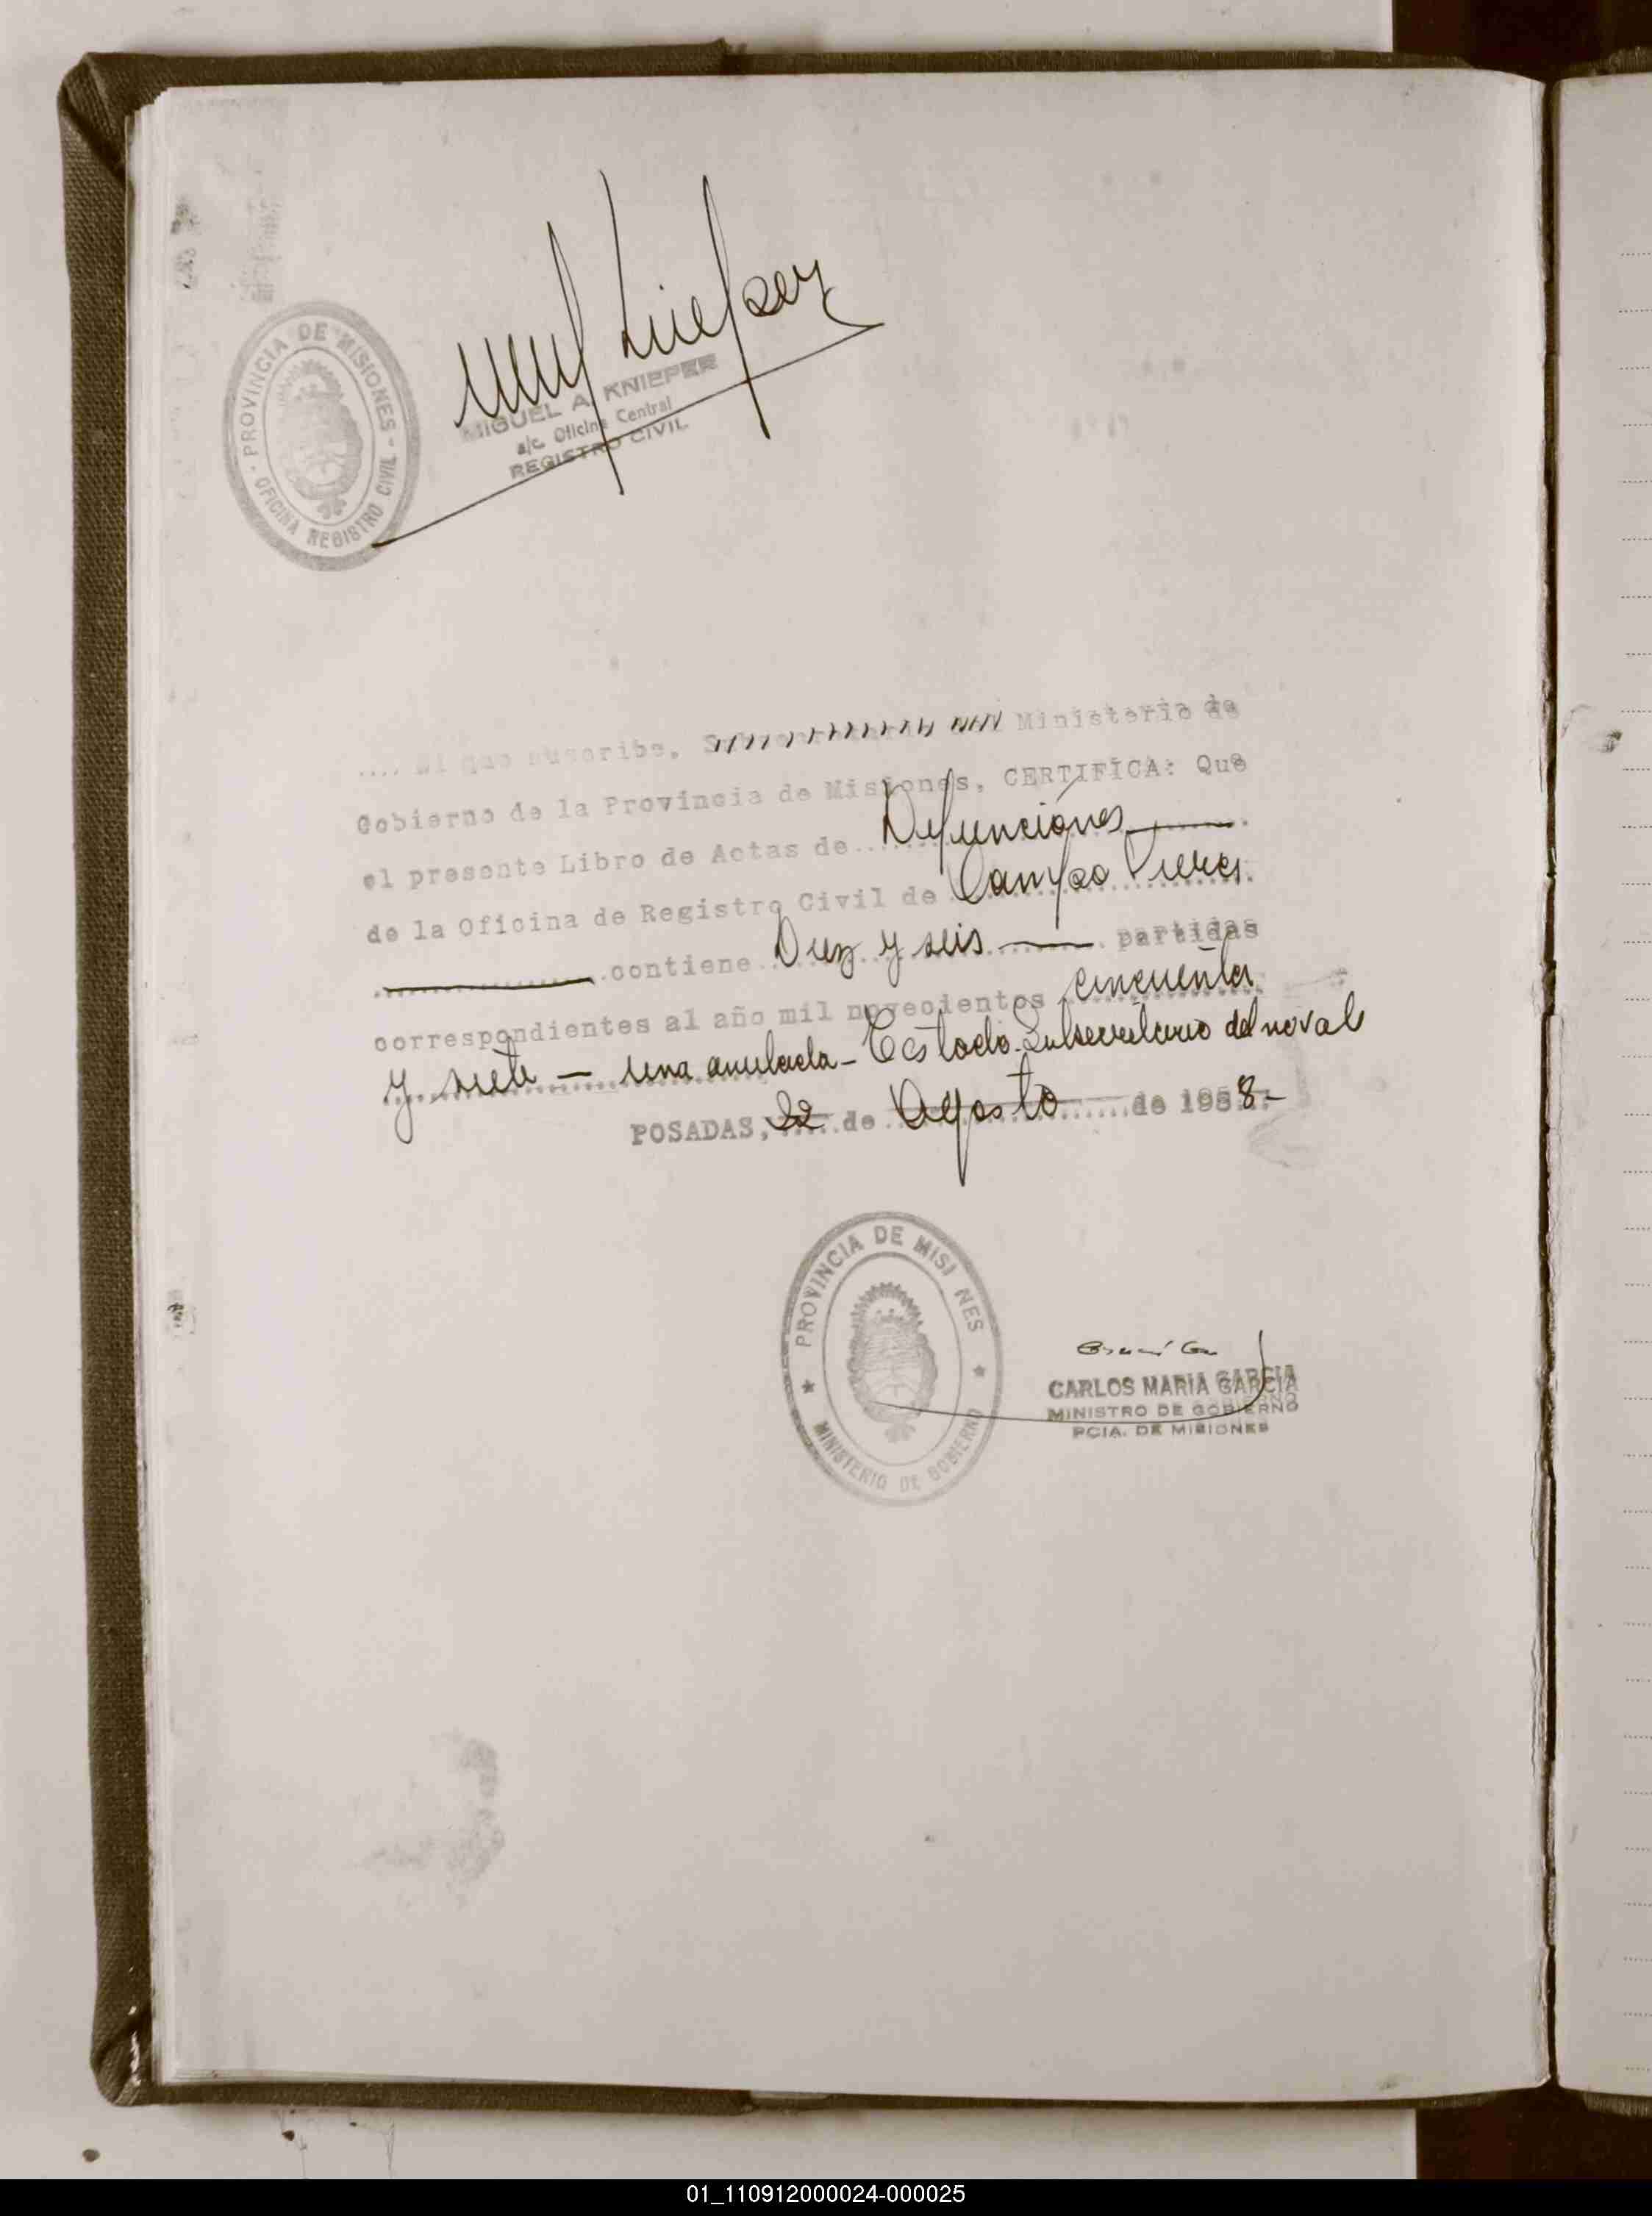 PROVINCIA DE MISIONES
OFICINA REGISTRO CIVIL
MIGUEL A. KNIEPER
a/c. Oficina Central
REGISTRO CIVIL
.... El que suscribe, Ministerio de
Gobierno de la Provincia de Misiones, CERTIFICA: Que
el presente Libro de Actas de Defunciones
de la Oficina de Registro Civil de Campo Viera
contiene Diez y seis partidas
correspondientes al año mil novecientos cincuenta
y siete - una anulada - Testado: Subsecretario del no vale
POSADAS, 22 de Agosto de 1958-
PROVINCIA DE MISI NES
MINISTERIO DE GOBIERNO
CARLOS MARIA GARCIA
MINISTRO DE GOBIERNO
PCIA. DE MISIONES
01_110912000024-000025